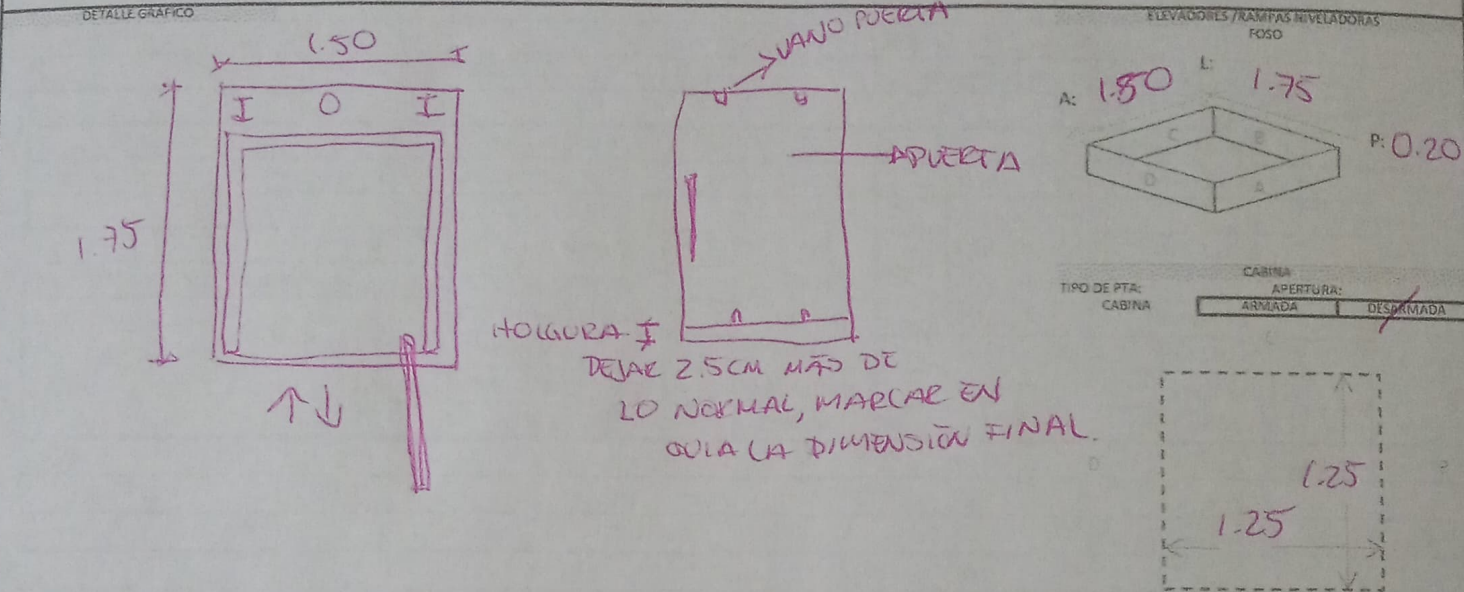 DETALLE GRAFICO
1.50
I O I
1.75
VANO PUERTA
APUERTA
HOLGURA
DEJAR 2.5CM MÃO DE
LO NORMAL, MARCAR EN
GUIA LA DIMENSIÓN FINAL.
ELEVADORES /RAMPAS NIVELADORAS
FOSO
A: 1.50 L: 1.75
P: 0.20
C B
D A
CABINA
TIPO DE PTA: APERTURA:
CABINA ARMADA DESARMADA
1.25
1.25